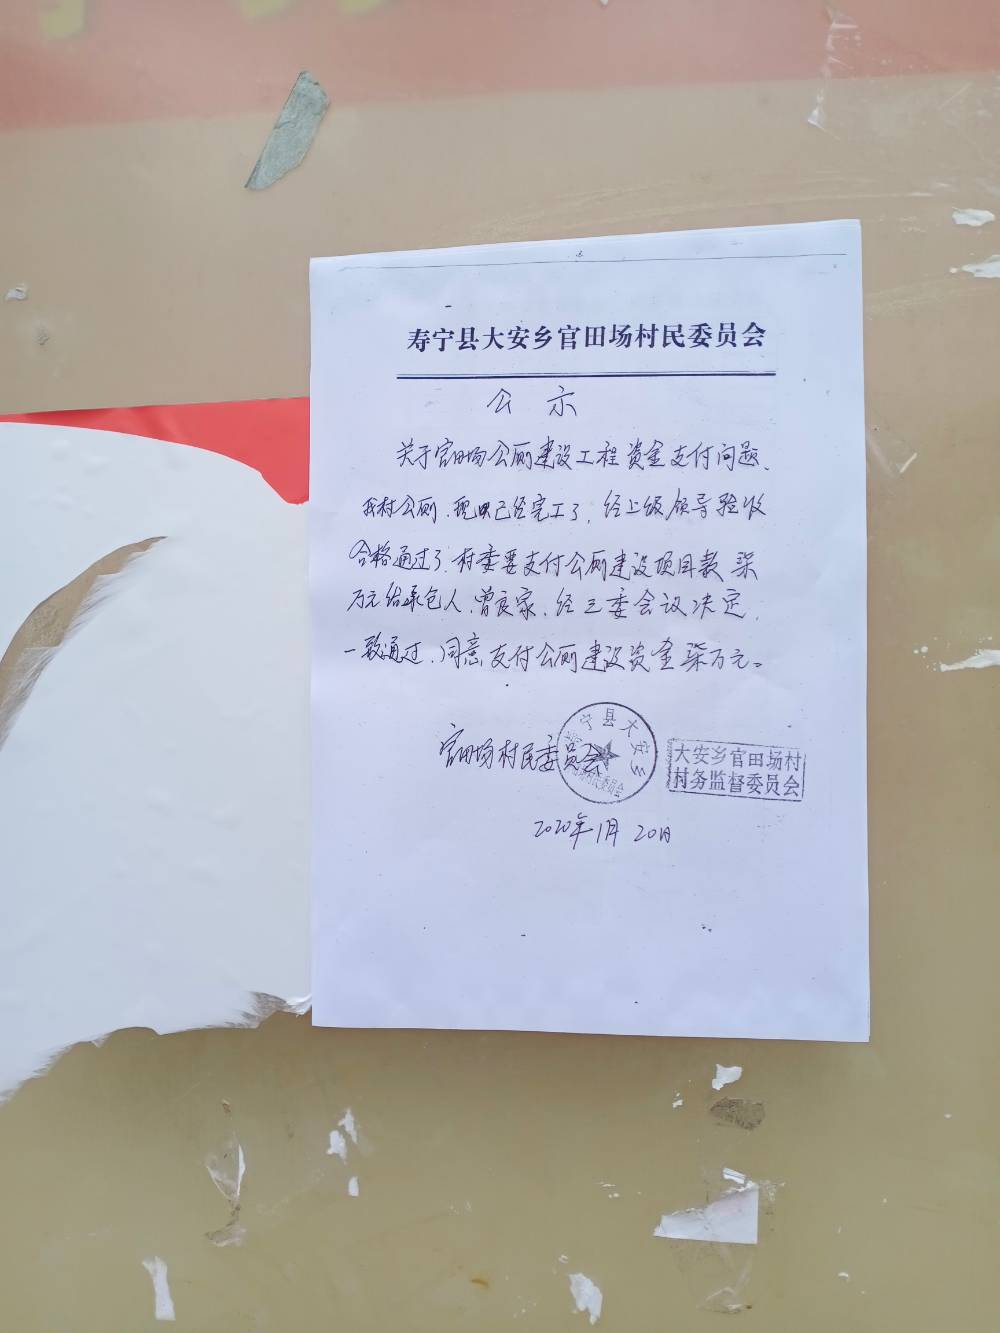 寿宁县大安乡官田场村民委员会
公示
关于官田场公厕建设工程资金支付问题、
我村公厕、现已经完工了,经上级领导验收
合格通过了.村委要支付公厕建设项目款柒
万元给承包人.曾良家.经三委会议决定,
一致通过、同意支付公厕建设资金柒万元。
官田场村民委员会
宁县大安乡
村民委员会
大安乡官田场村
村务监督委员会
2020年1月20日